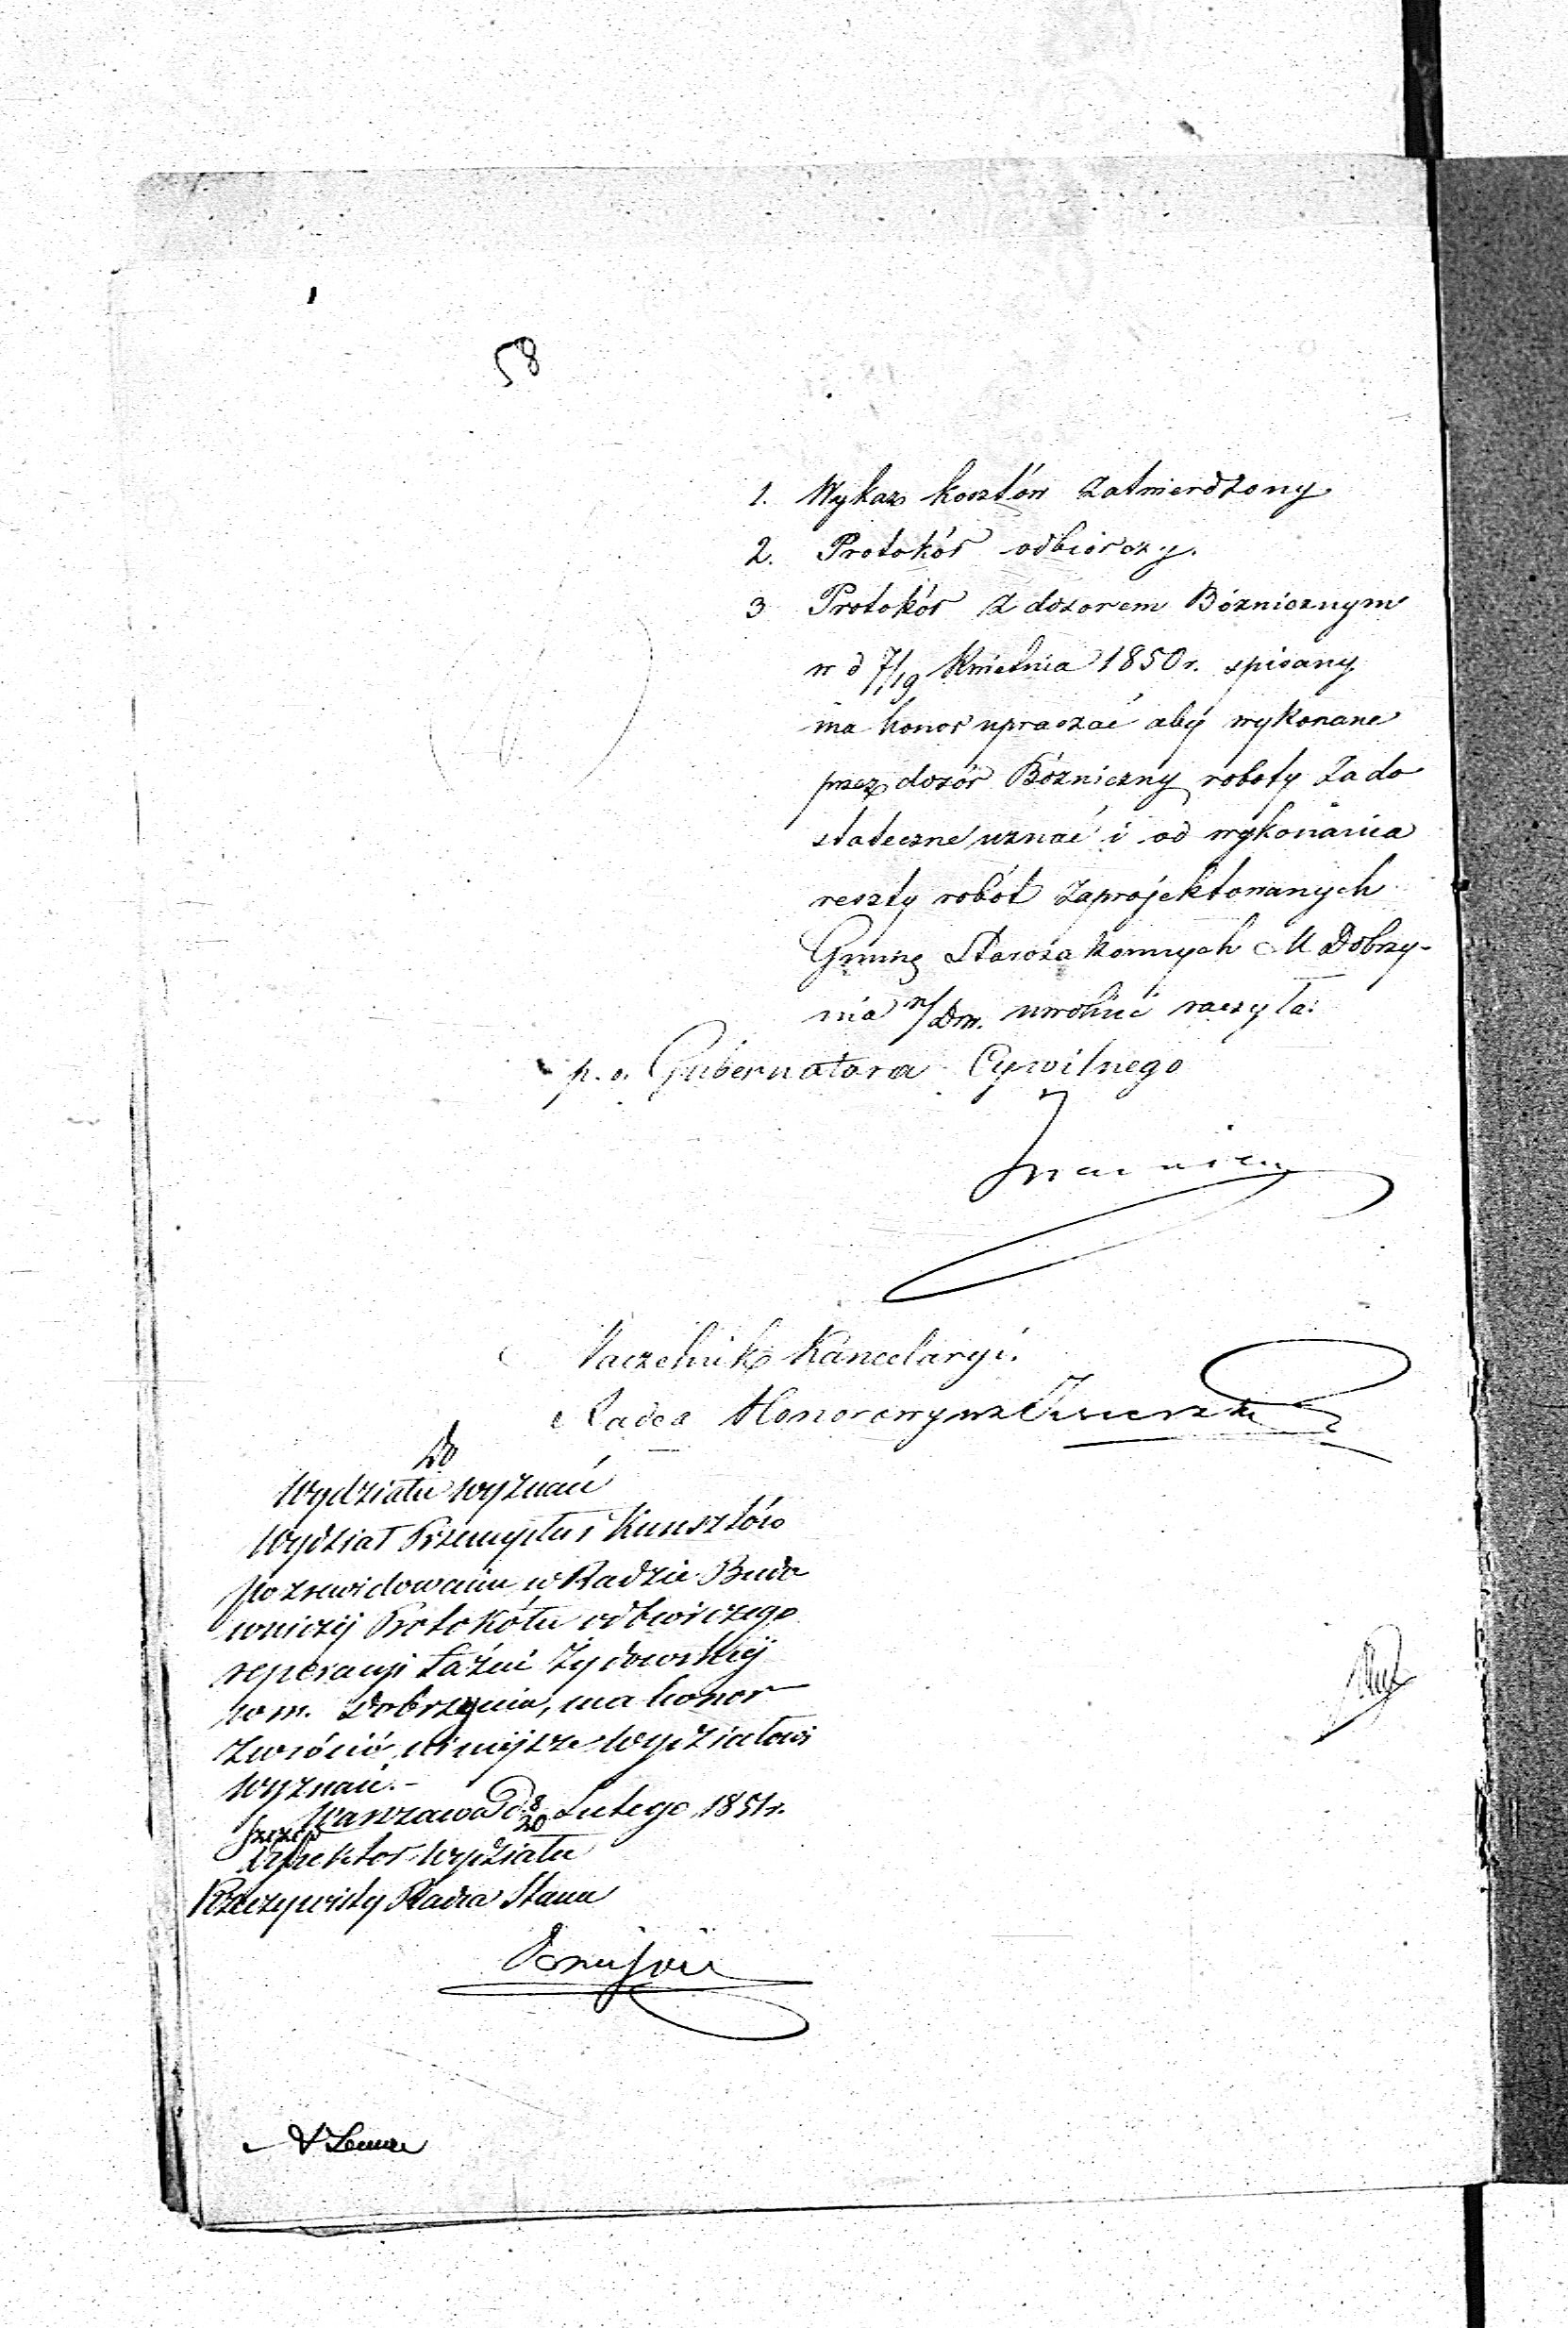 58
1. Wykaz kosztów zatwierdzony
2. Protokół odbiorczy.
3 Protokół z dozorem Bóżnicznym
w d 7/19 Kwietnia 1850 r. spisany
ma honor upraszać aby wykonane
przez dozór Bóżniczny roboty za do
stateczne uznać i od wykonania
reszty robót zaprojektowanych
Gminę Starozakonnych M Dobrzy-
nia n/Drw. uwolnić raczyła.
p. o. Gubernatora Cywilnego
Naczelnik Kancelaryi.
Radca Honorowy
Do
Wydziału Wyznań
Wydział Przemysłu i Kunsztów
po zrewidowaniu w Radzie Budo
wniczij Protokółu odbiorczego
reperacyi Łaźni Żydowskiej
w m. Dobrzyniu, ma honor
zwrócić niniejsze Wydziałowi
Wyznań.-
Warszawa d. 8/20 Lutego 1851 r.
Dyrektor Wydziału
Rzeczywisty Radca Stanu